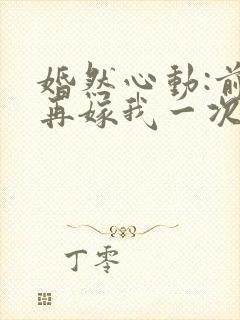 婚然心动:前
再嫁我一次
丁零